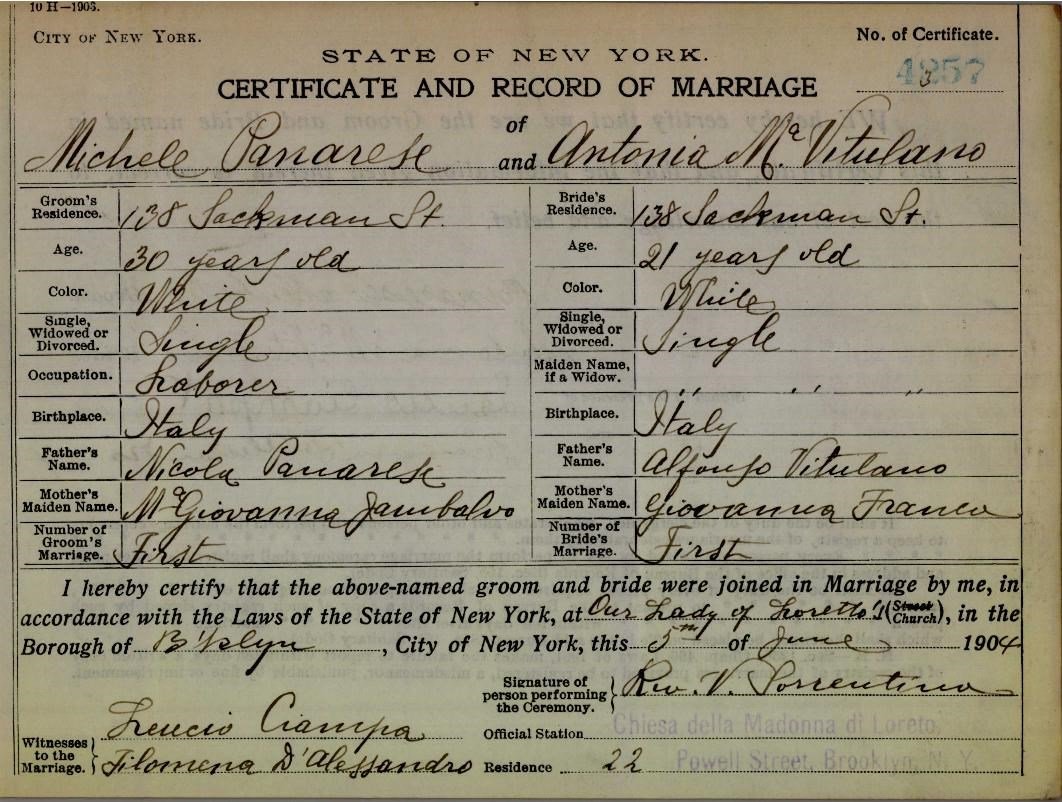 10 H—1903.
CITY OF NEW YORK.
No. of Certificate.
STATE OF NEW YORK.
4357
CERTIFICATE AND RECORD OF MARRIAGE
of
Michele Panarese and Antonia Mª Vitulano
Groom's Residence. 138 Sackman St. Bride's Residence. 138 Sackman St.
Age. 30 years old Age. 21 years old
Color. White Color. White
Single, Widowed or Divorced. Single Single, Widowed or Divorced. Single
Occupation. Laborer Maiden Name, if a Widow. " " "
Birthplace. Italy Birthplace. Italy
Father's Name. Nicola Panarese Father's Name. Alfonso Vitulano
Mother's Maiden Name. Mª Giovanna Jambalvo Mother's Maiden Name. Giovanna Franco
Number of Groom's Marriage. First Number of Bride's Marriage. First
I hereby certify that the above-named groom and bride were joined in Marriage by me, in
accordance with the Laws of the State of New York, at Our Lady of Loretto's (Street Church), in the
Borough of B'klyn, City of New York, this 5th of June 1904
Signature of person performing the Ceremony. Rev. V. Sorrentino
Witnesses to the Marriage. Leucio Ciampa
Filomena D'Alessandro
Official Station Chiesa della Madonna di Loreto,
Residence 22 Powell Street, Brooklyn, N. Y.